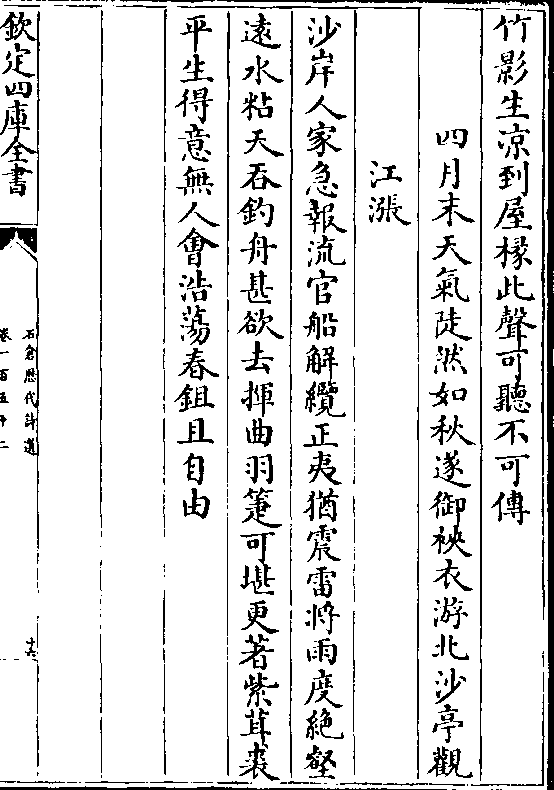 竹影生凉到屋椽此聲可聽不可傳
四月末天氣陡然如秋遂御裌衣游北沙亭觀
江漲
沙岸人家急報流官船解纜正夷猶震雷將雨度絶壑
遠水粘天吞釣舟甚欲去揮曲羽箑可堪更著紫茸裘
平生得意無人會浩蕩春鉏且自由
欽定四庫全書
石倉歴代詩選
卷一百五十二
十六